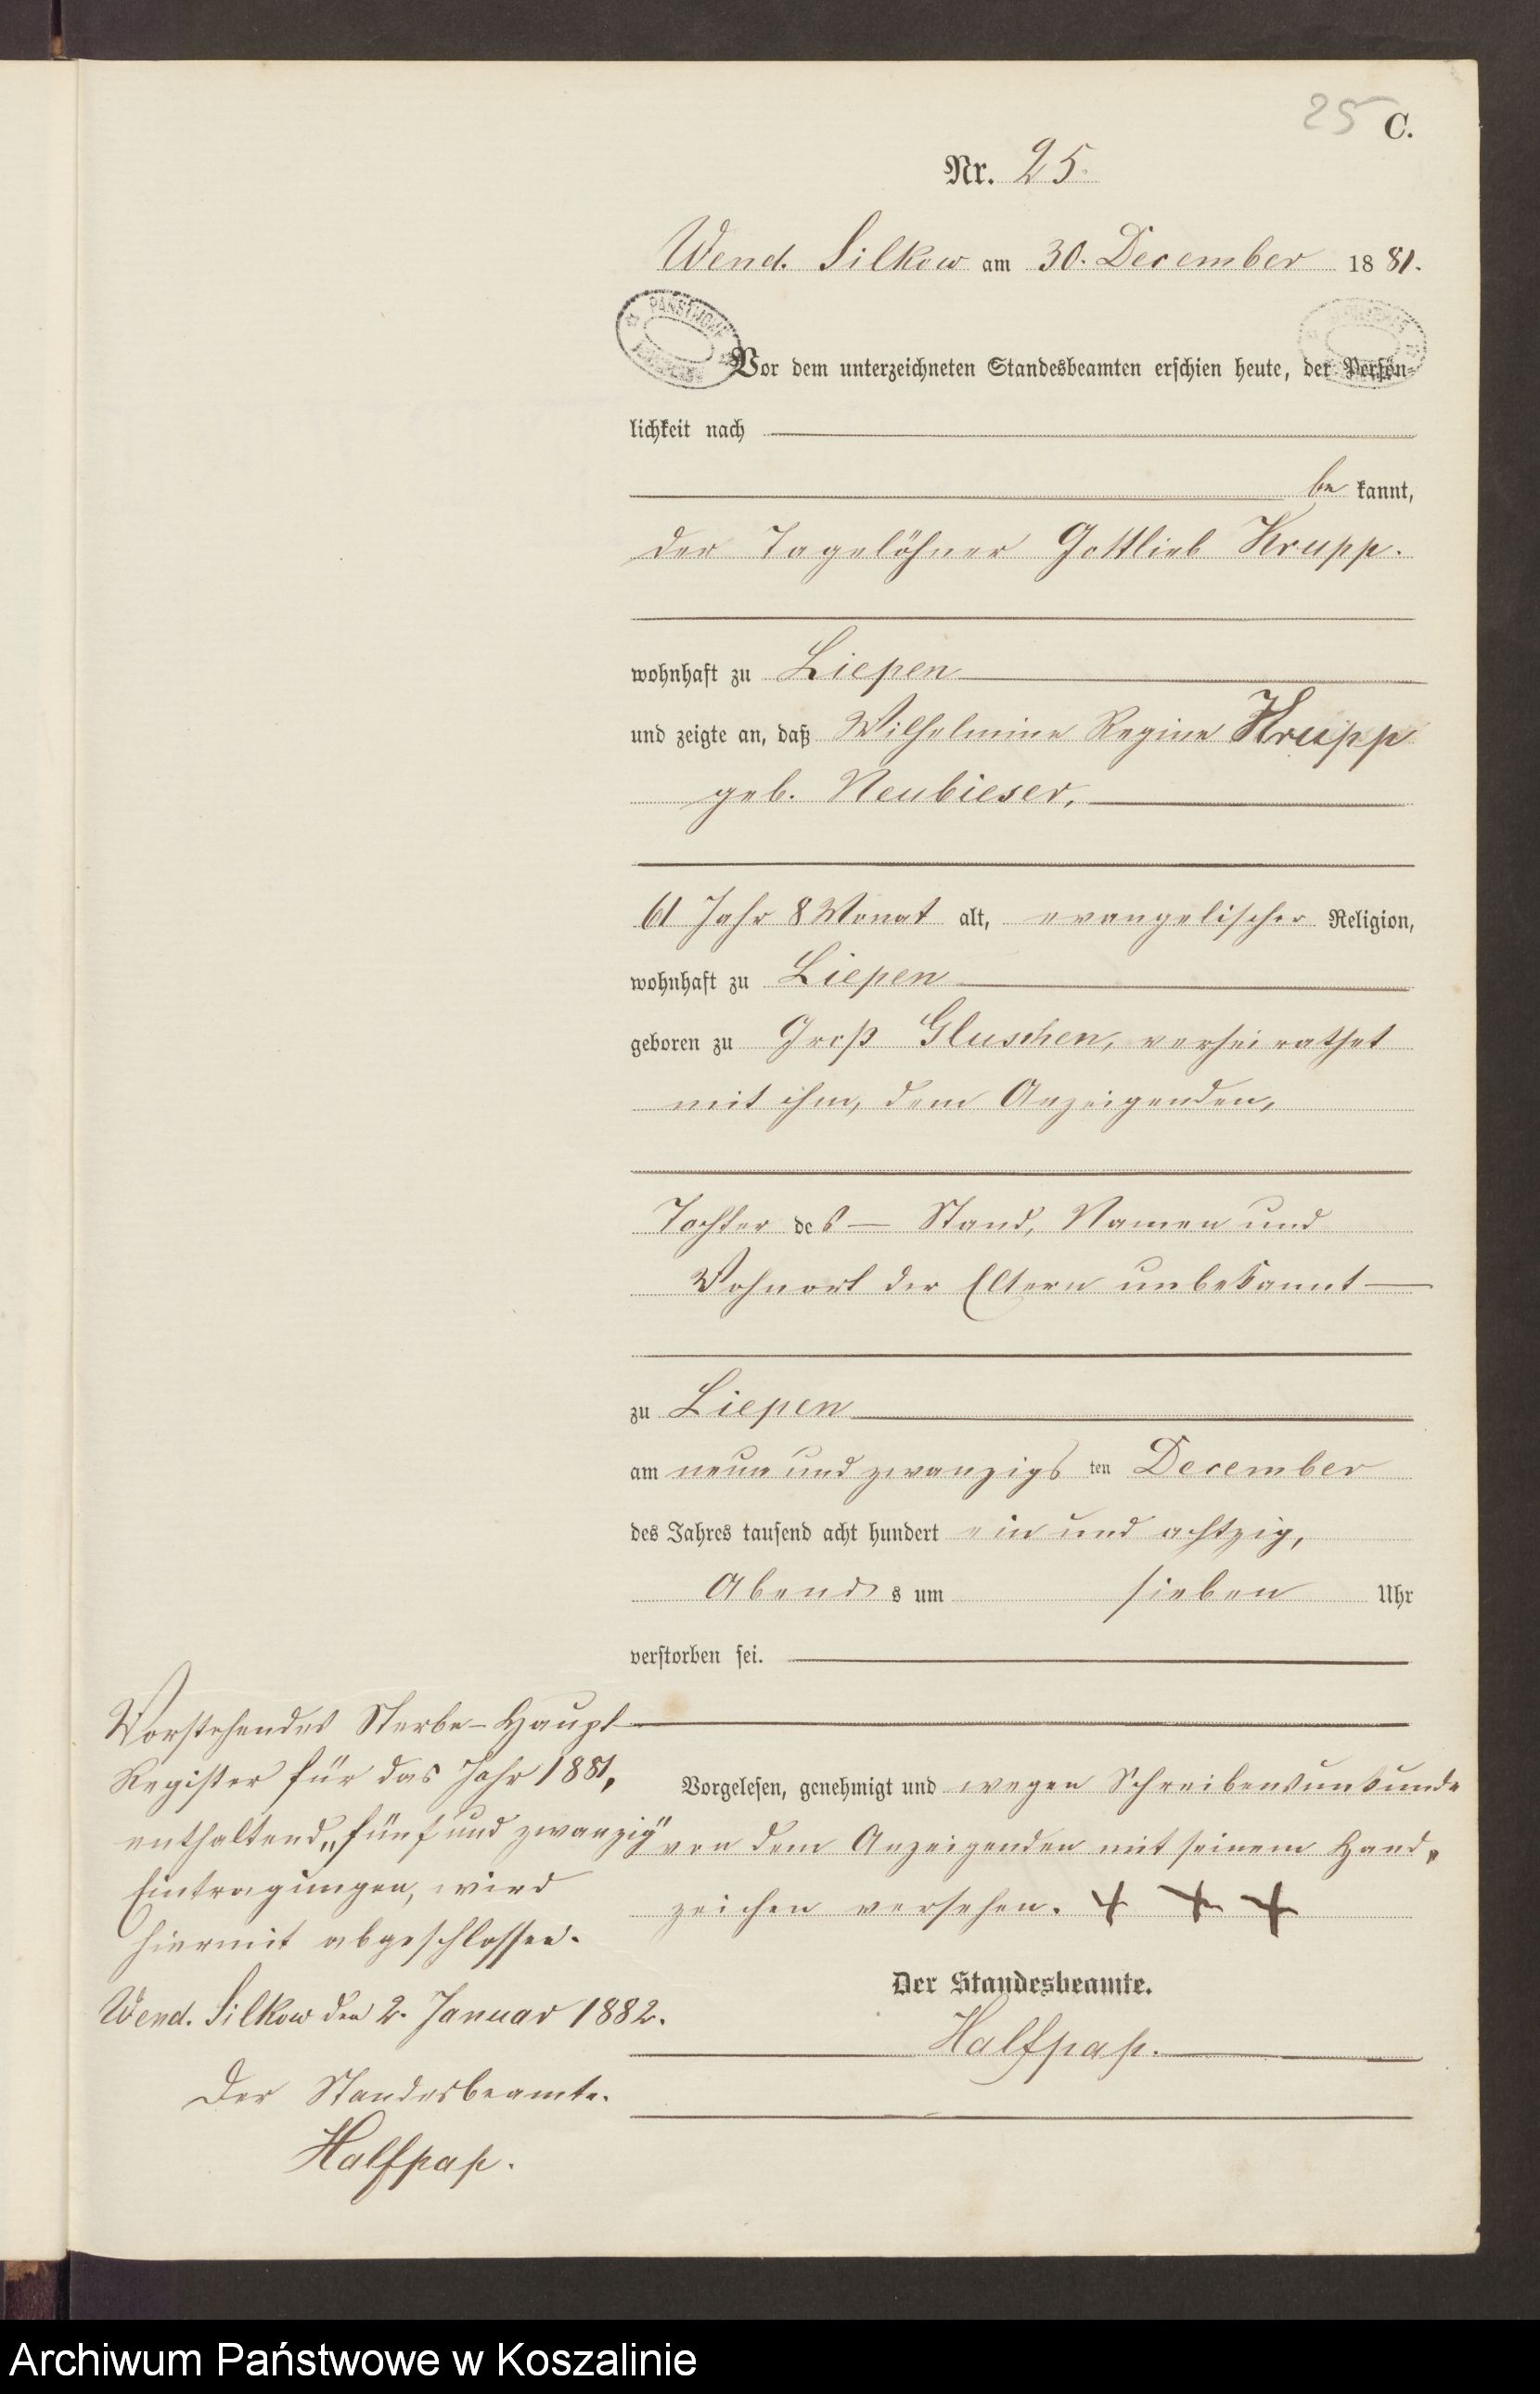 25 C.
Nr. 25.
Wend. Silkow am 30. December 1881.
PAŃSTWOWE
Vor dem unterzeichneten Standesbeamten erschien heute, der Persön-
lichkeit nach
be kannt,
der Tagelöhner Gottlieb Krupp.
wohnhaft zu Liepen
und zeigte an, daß Wilhelmine Regine Krupp
geb. Neubieser,
61 Jahr 8 Monat alt, evangelischer Religion,
wohnhaft zu Liepen
geboren zu Groß Gluschen, verheirathet
mit ihm, dem Anzeigenden,
Tochter des — Stand, Namen und
Wohnort der Eltern unbekannt —
zu Liepen
am neun und zwanzigsten December
des Jahres tausend acht hundert ein und achtzig,
Abends um sieben Uhr
verstorben sei.
Vorgelesen, genehmigt und wegen Schreibensunkunde
von dem Anzeigenden mit seinem Hand-
zeichen versehen. + + +
Der Standesbeamte.
Halfpap.
Vorstehendes Sterbe-Haupt-
Register für das Jahr 1881,
enthaltend „fünf und zwanzig"
Eintragungen, wird
hiermit abgeschlossen.
Wend. Silkow den 2. Januar 1882.
Der Standesbeamte.
Halfpap.
Archiwum Państwowe w Koszalinie